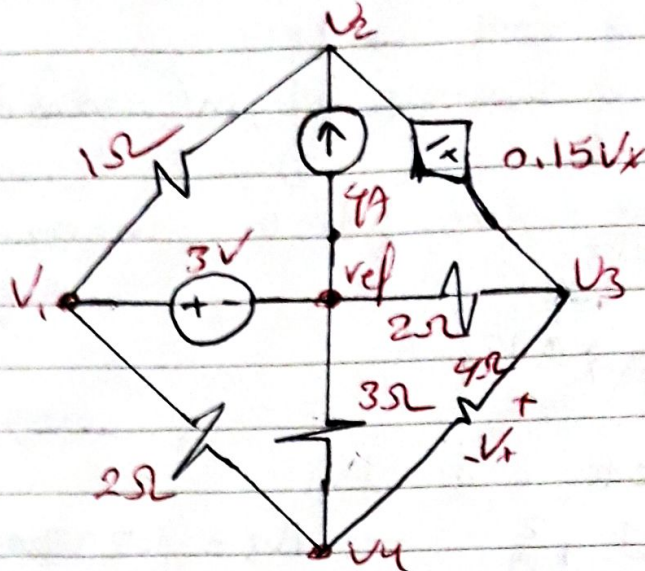 V2
1Ω
0.15Vx
4A
3V
ref
V1
+ -
V3
2Ω
4Ω
3Ω
+
-Vx
2Ω
V4